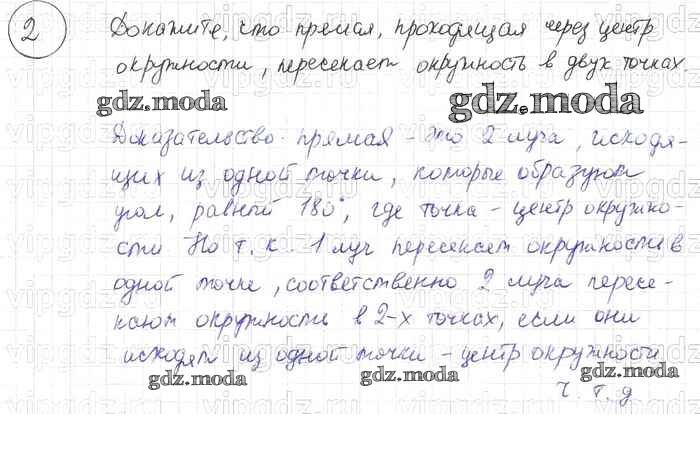 2 Докажите, что прямая, проходящая через центр
окружности, пересекает окружность в двух точках
gdz.moda gdz.moda
Доказательство. прямая - это 2 луча, исходя-
щих из одной точки, которые образуют
угол, равный 180°, где точка - центр окружно-
сти Но т. к. 1 луч пересекает окружность в
одной точке, соответственно 2 луча пересе-
кают окружность в 2-х точках, если они
исходят из одной точки - центр окружности
gdz.moda gdz.moda gdz.moda
Ч. т. д